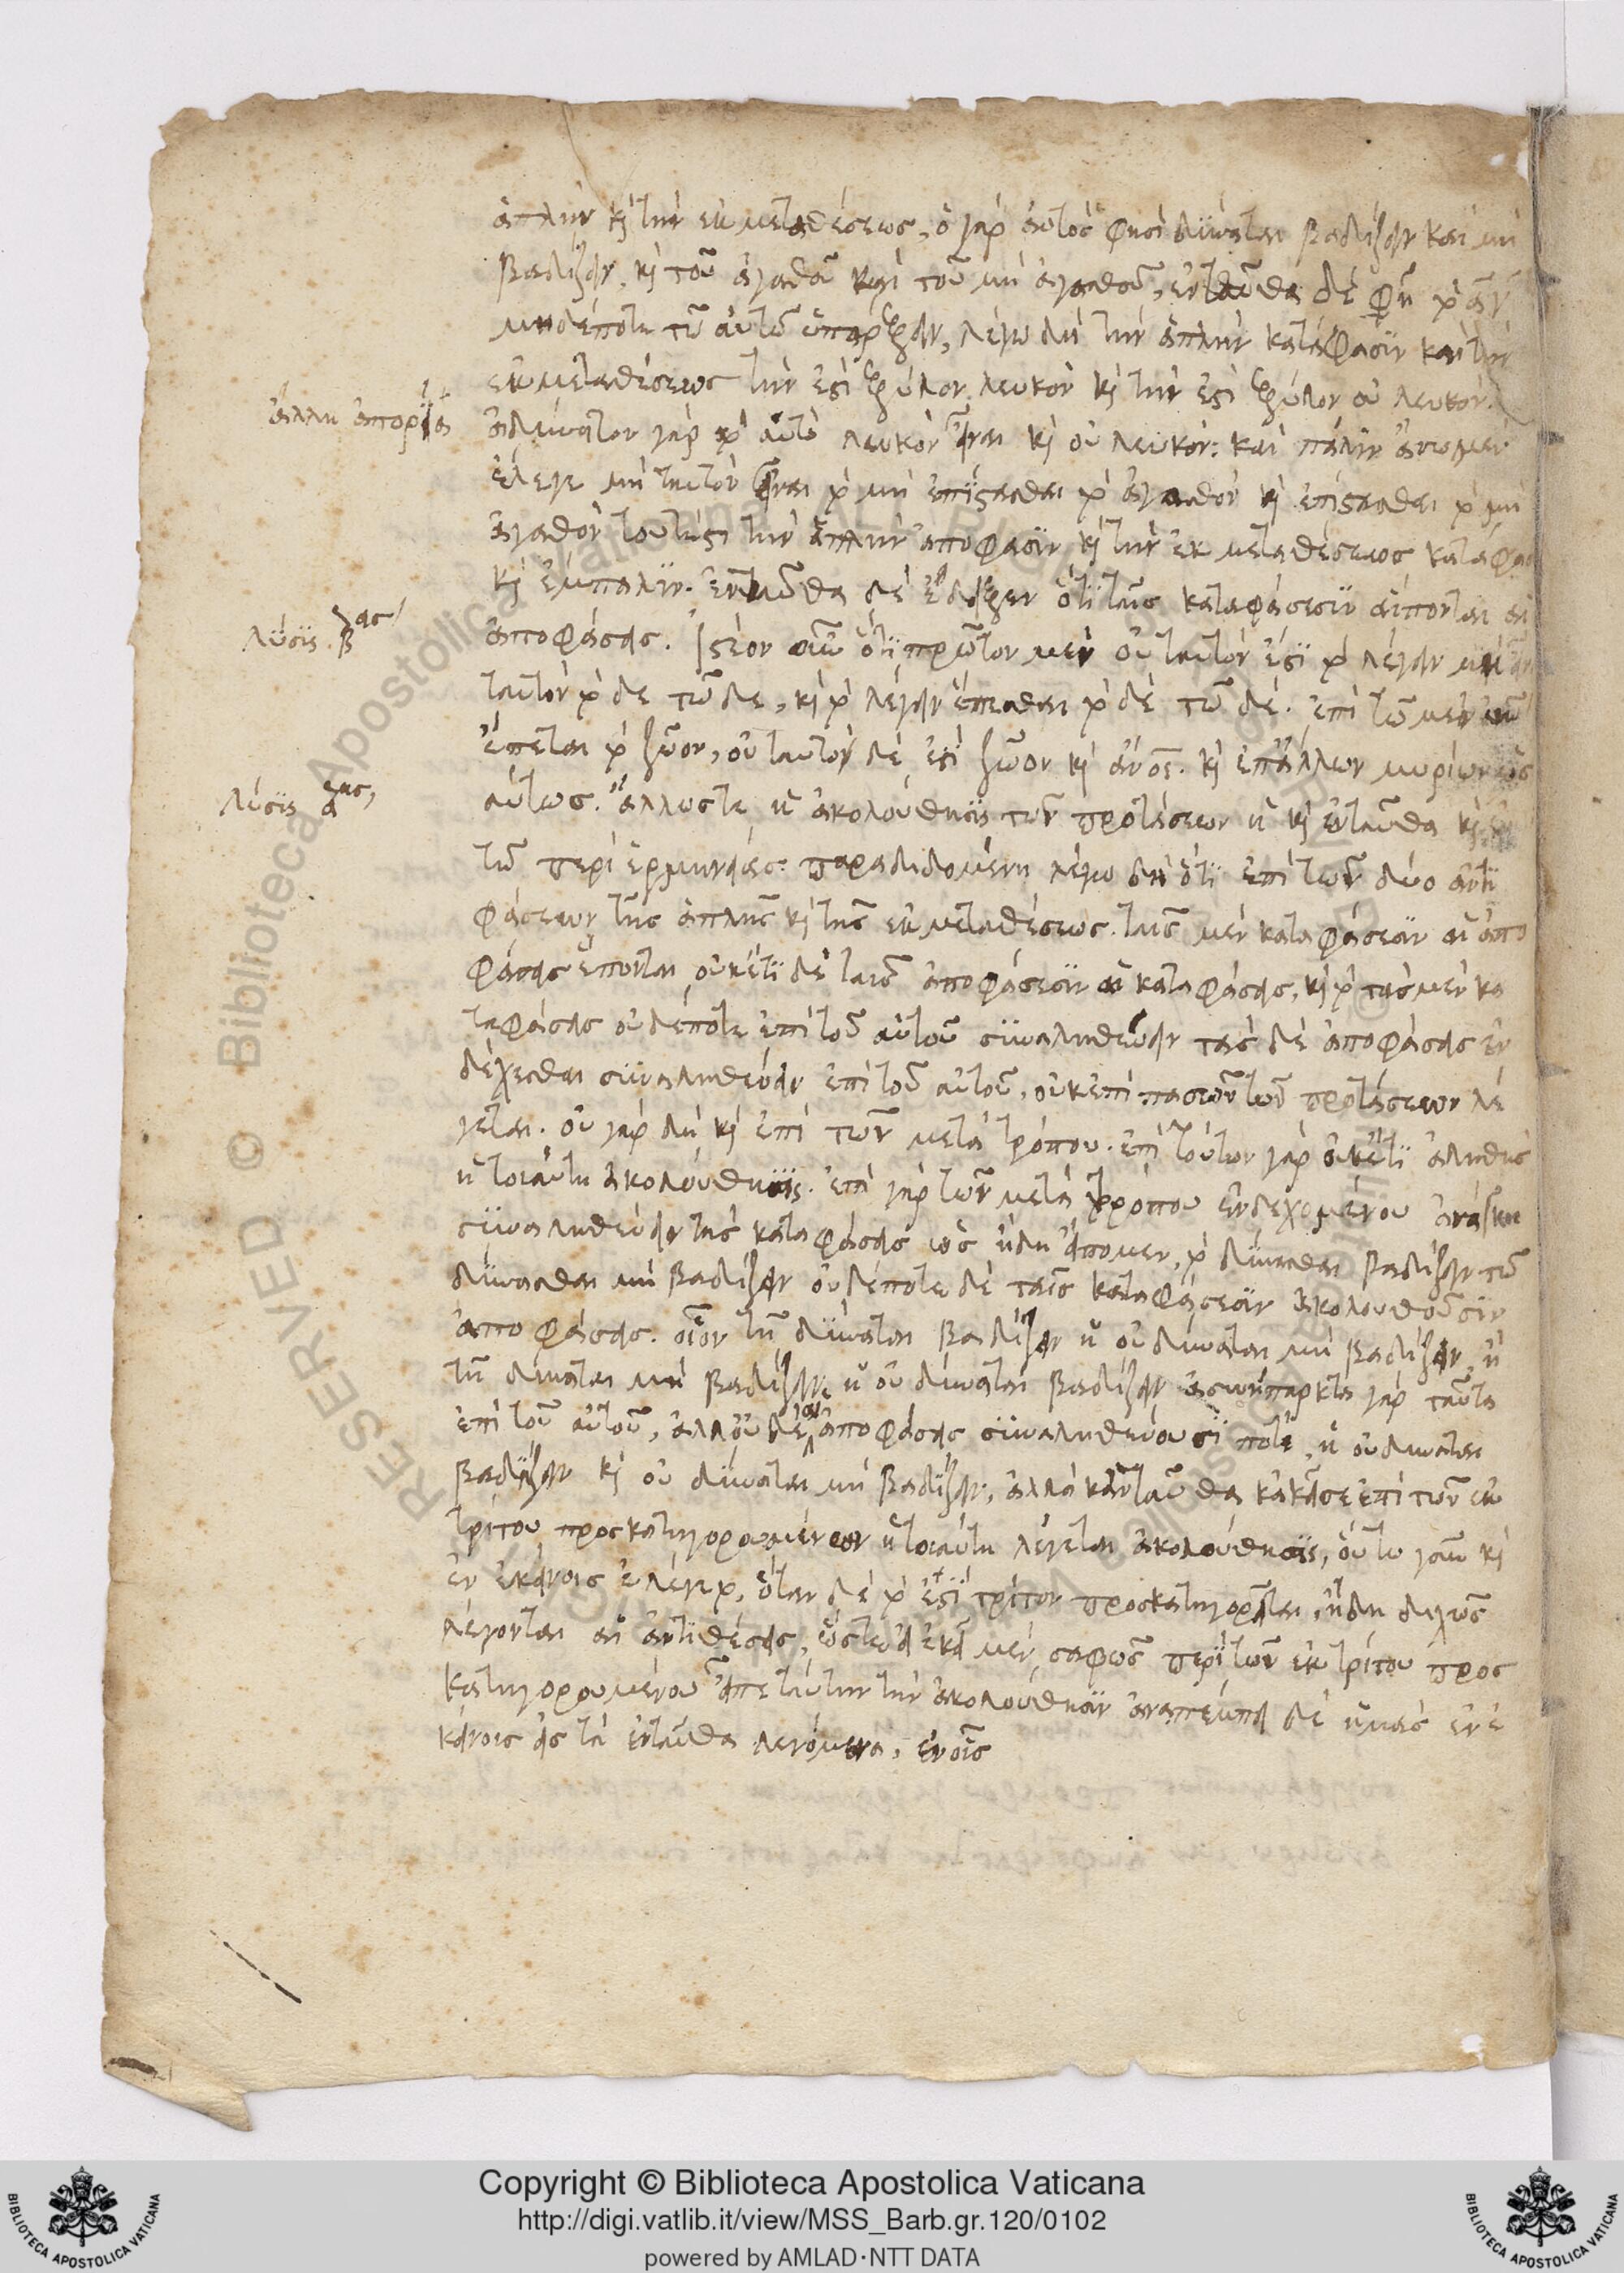 ἁπλὴν κ̀ τὴν ἐκ μεταθέσεως, ὁ γὰρ αὐτὸς φησὶ δύναται βαδίζειν καὶ μὴ
βαδίζειν, κ̀ τοῦ ἀγαθοῦ καὶ τοῦ μὴ ἀγαθοῦ, ἐνταῦθα δὲ
μηδέποτε τῶ αὐτῶ ὑπάρχειν, λέγω δὴ τὴν ἁπλὴν κατάφασιν καὶ τὴν
ἐκ μεταθέσεως τὴν ἐστὶ ξύλον λευκὸν κ̀ τὴν ἐστὶ ξύλον οὐ λευκόν.
ἄλλη ἀπορία
ἀδύνατον γὰρ τὸ αὐτὸ λευκὸν εἶναι κ̀ οὐ λευκόν: καὶ πάλιν
ἔλεγε μὴ ταὐτὸν εἶναι τὸ μὴ ἐπίστασθαι τὸ ἀγαθὸν κ̀ ἐπίστασθαι τὸ μὴ
ἀγαθὸν τουτέστι τὴν ἁπλὴν ἀπόφασιν κ̀ τὴν ἐκ μεταθέσεως
κ̀ ἔμπαλιν. ἐνταῦθα δὲ ἔδειξεν ὅτι ταῖς καταφάσεσιν
λύσις β ας
ἀποφάσεις. ἰστέον οὖν ὅτι πρῶτον μὲν οὐ ταυτόν ἐστι τὸ λέγειν
ταυτὸν τὸ δε τῶ δε, κ̀ τὸ λέγειν ἕπεσθαι τὸ δὲ τῶ δέ. ἐπὶ τῶ μὲν
ἕπεται τὸ ζῶον, οὐ ταυτὸν δέ ἐστὶ ζῶον κ̀ ἄνος. κ̀ ἐπ' ἄλλων μυρίων ὡς
λύσις α ης
αύτως. ἄλλωστε ἡ ἀκολούθησις τῶν προτάσεων ἡ κ̀ ἐνταῦθα κ̀
τῶ περὶ ἑρμηνείας παραδιδομένη λέγω δὴ ὅτι ἐπὶ τῶν δύο ἀντι
φάσεων τῆς ἁπλῆς κ̀ τῆς ἐκ μεταθέσεως. ταῖς μὲν καταφάσεσιν αἱ ἀπο
φάσεις ἕπονται, οὐκέτι δὲ ταῖς ἀποφάσεσιν αἱ καταφάσεις, κ̀ τὸ τὰς μὲν κα
ταφάσεις οὐδέποτε ἐπὶ τοῦ αὐτοῦ συναληθεύειν τὰς δὲ ἀποφάσεις ἐν
δέχεσθαι συναληθεύειν ἐπὶ τοῦ αὐτοῦ, οὐκ ἐπὶ πασῶν τῶν προτάσεων λέ
γεται. οὐ γὰρ δὴ κ̀ ἐπὶ τῶν μετὰ τρόπου. ἐπὶ τούτων γὰρ οὐκέτι ἀληθὴς
ἡ τοιαύτη ἀκολούθησις. ἐπὶ γὰρ τῶν μετὰ τρόπου ἐνδεχομένου ἀνάγκη
συναληθεύειν τὰς καταφάσεις ὡς ἤδη εἴπομεν, τὸ δύνασθαι βαδίζειν τῶ
δύνασθαι μὴ βαδίζειν οὐδέποτε δὲ ταῖς καταφάσεσιν ἀκολουθοῦσιν
ἀποφάσεις. οἷον τῆ δύναται βαδίζειν ἡ οὐ δύναται μὴ βαδίζειν, ἢ
τῆ δύναται μὴ βαδίζειν ἡ οὐ δύναται βαδίζειν ἀσυνύπαρκτα γὰρ ταῦτα
ἐπὶ τοῦ αὐτοῦ, ἀλλ' οὐδὲ αἱ ἀποφάσεις συναληθεύουσί ποτε, ἡ οὐ δύναται
βαδίζειν κ̀ οὐ δύναται μὴ βαδίζειν, ἀλλὰ κἀνταῦθα κἀκεῖσε ἐπὶ τῶν ἐκ
τρίτου προσκατηγορουμένων ἡ τοιαύτη λέγεται ἀκολούθησις, οὕτω γοῦν κ̀
ἐν ἐκείνοις ἔλεγε, ὅταν δὲ τὸ ἐστὶ τρίτον προσκατηγορῆται, ἤδη διχῶς
λέγονται αἱ ἀντιθέσεις, ὥστε ἐκεῖ μὲν σαφῶς περὶ τῶν ἐκ τρίτου προσ
κατηγορουμένου εἶπε ταύτην τὴν ἀκολούθησιν ἀναπέμπει δὲ ἡμᾶς ἐν ἐ
κείνοις εἰς τὰ ἐνταῦθα λεγόμενα, ἐν οἷς
Copyright © Biblioteca Apostolica Vaticana
http://digi.vatlib.it/view/MSS_Barb.gr.120/0102
powered by AMLAD·NTT DATA
BIBLIOTECA APOSTOLICA VATICANA
BIBLIOTECA APOSTOLICA VATICANA